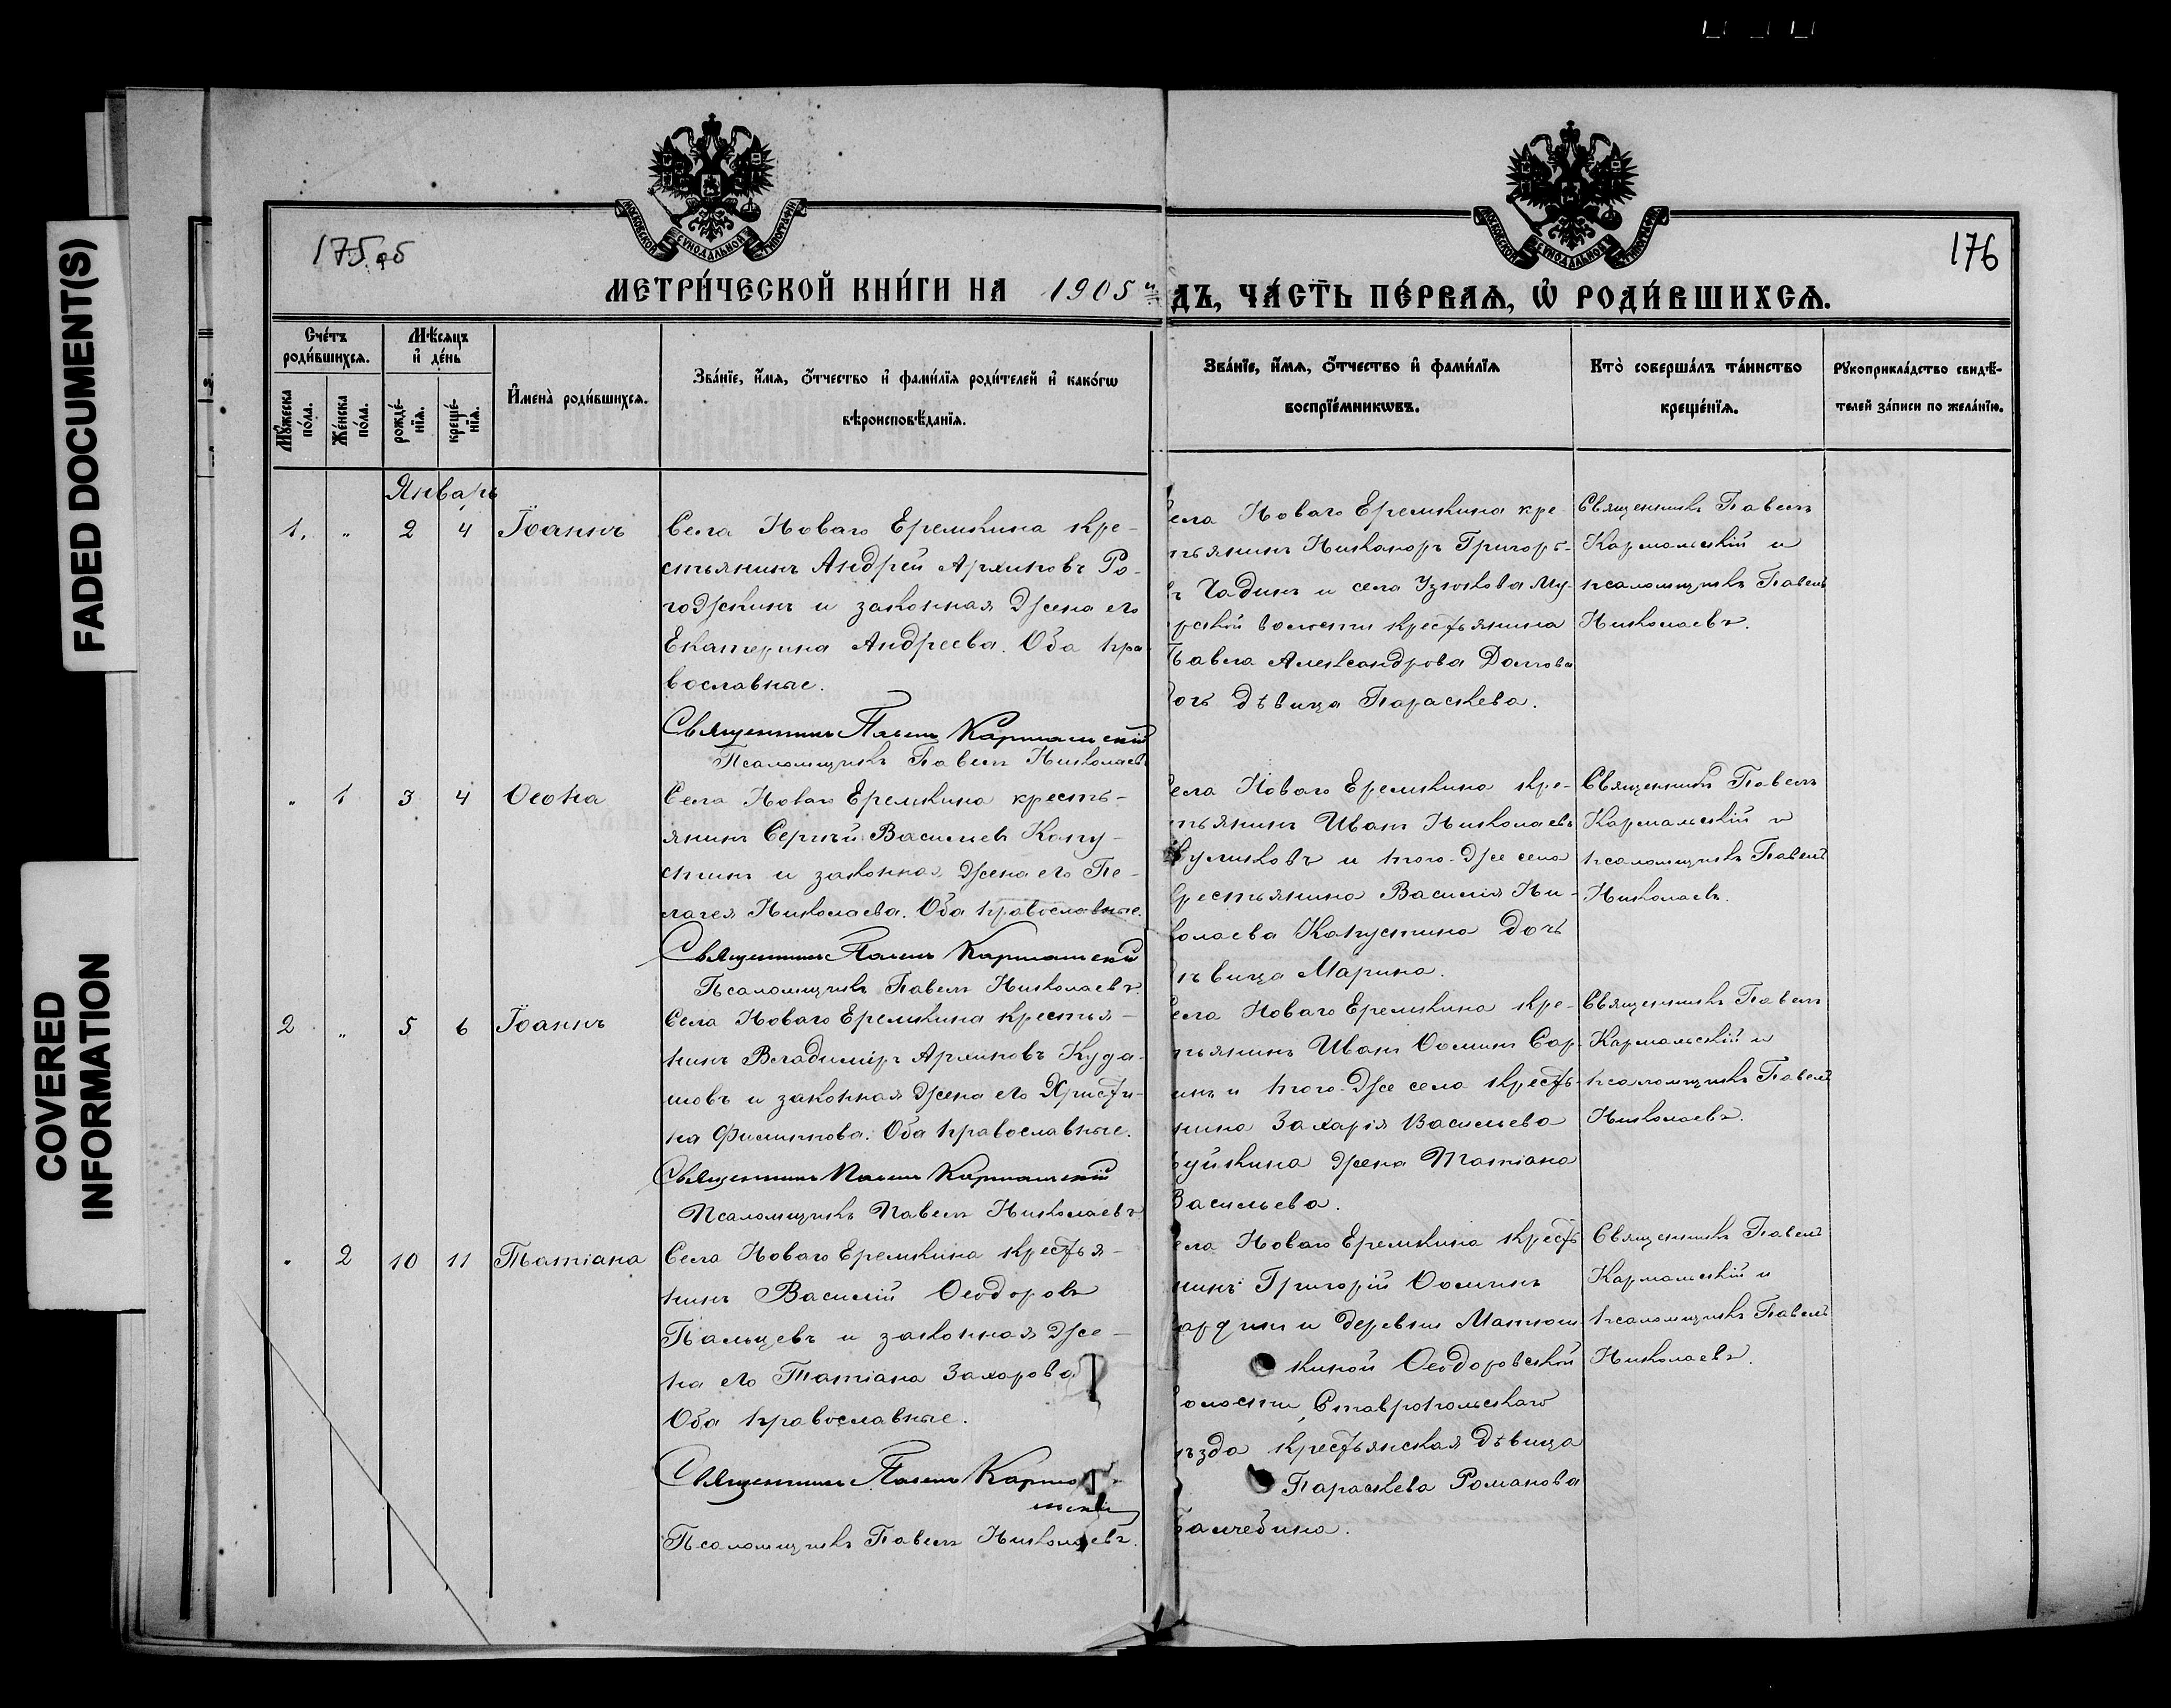 FADED DOCUMENT(S)
COVERED
INFORMATION
175 об
176
МОСКОВСКОЙ СѴНОДАЛЬНОЙ ТИПОГРАФІИ
МОСКОВСКОЙ СѴНОДАЛЬНОЙ ТИПОГРАФІИ
МЕТРИ́ЧЕСКОЙ КНИ́ГИ НА 1905 й
ДЪ, ЧА́СТЬ ПЕ́РВАѦ, Ѿ РОДИ́ВШИХСѦ.
Сче́тъ
роди́вшихсѧ.
Мꙋ́жеска
по́ла.
Же́нска
по́ла.
Мѣ́сѧцъ
и҆ де́нь
рожде́-
нїѧ.
креще́-
нїѧ.
И҆мена̀ роди́вшихсѧ.
Зва́нїе, и҆́мѧ, ѻ҆́тчество и҆ фами́лїѧ роди́телей и҆ како́гѡ
вѣроисповѣ́данїѧ.
Зва́нїе, и҆́мѧ, ѻ҆́тчество и҆ фами́лїѧ
воспрїе́мникѡвъ.
Кто̀ соверша́лъ та́инство
креще́нїѧ.
Рꙋкоприкла́дство свидѣ́-
телей за́писи по жела́нїю.
Январь
1. " 2 4 Іоаннъ
Села Новаго Еремкина кре-
стьянинъ Андрей Архиповъ Ро-
годжкинъ и законная жена его
Екатерина Андреева. Оба пра-
вославные.
Священникъ Павелъ Кармальскій
Псаломщикъ Павелъ Николаевъ
ела Новаго Еремкина кре-
тьянинъ Никаноръ Григорь-
ъ Чадинъ и села Узюкова Му-
рской волости крестьянина
Павла Александрова Долгова
очь дѣвица Параскева.
Священникъ Павелъ
Кармальскій и
псаломщикъ Павелъ
Николаевъ.
" 1 3 4 Ѳеокла
Села Новаго Еремкина кресть-
янинъ Сергѣй Васильевъ Капу-
стинъ и законная жена его Пе-
лагея Николаева. Оба православные.
Священникъ Павелъ Кармальскій
Псаломщикъ Павелъ Николаевъ.
ела Новаго Еремкина кре-
тьянинъ Иванъ Николаевъ
уликовъ и того-же села
рестьянина Василія Ни-
олаева Капустина дочь
ѣвица Марина.
Священникъ Павелъ
Кармальскій и
псаломщикъ Павелъ
Николаевъ.
2 " 5 6 Іоаннъ
Села Новаго Еремкина крестья-
нинъ Владиміръ Архиповъ Куда-
шовъ и законная жена его Христи-
на Филиппова. Оба православные.
Священникъ Павелъ Кармальскій
Псаломщикъ Павелъ Николаевъ
ела Новаго Еремкина кре-
тьянинъ Иванъ Ѳоминъ Сар-
инъ и того-же села кресть-
нина Захарія Васильева
уйкина жена Татіана
Васильева.
Священникъ Павелъ
Кармальскій и
псаломщикъ Павелъ
Николаевъ.
" 2 10 11 Татіана
Села Новаго Еремкина крестья-
нинъ Василій Ѳеодоровъ
Пальцевъ и законная же-
на его Татіана Захарова
Оба православные.
Священникъ Павелъ Карма-
льскій
Псаломщикъ Павелъ Николаевъ.
ела Новаго Еремкина кресть
нинъ Григорій Ѳоминъ
ардинъ и деревни Матюш
киной Ѳеодоровской
олости, Ставропольскаго
ѣзда крестьянская дѣвица
Параскева Романова
Священникъ Павелъ
Кармальскій и
псаломщикъ Павелъ
Николаевъ.